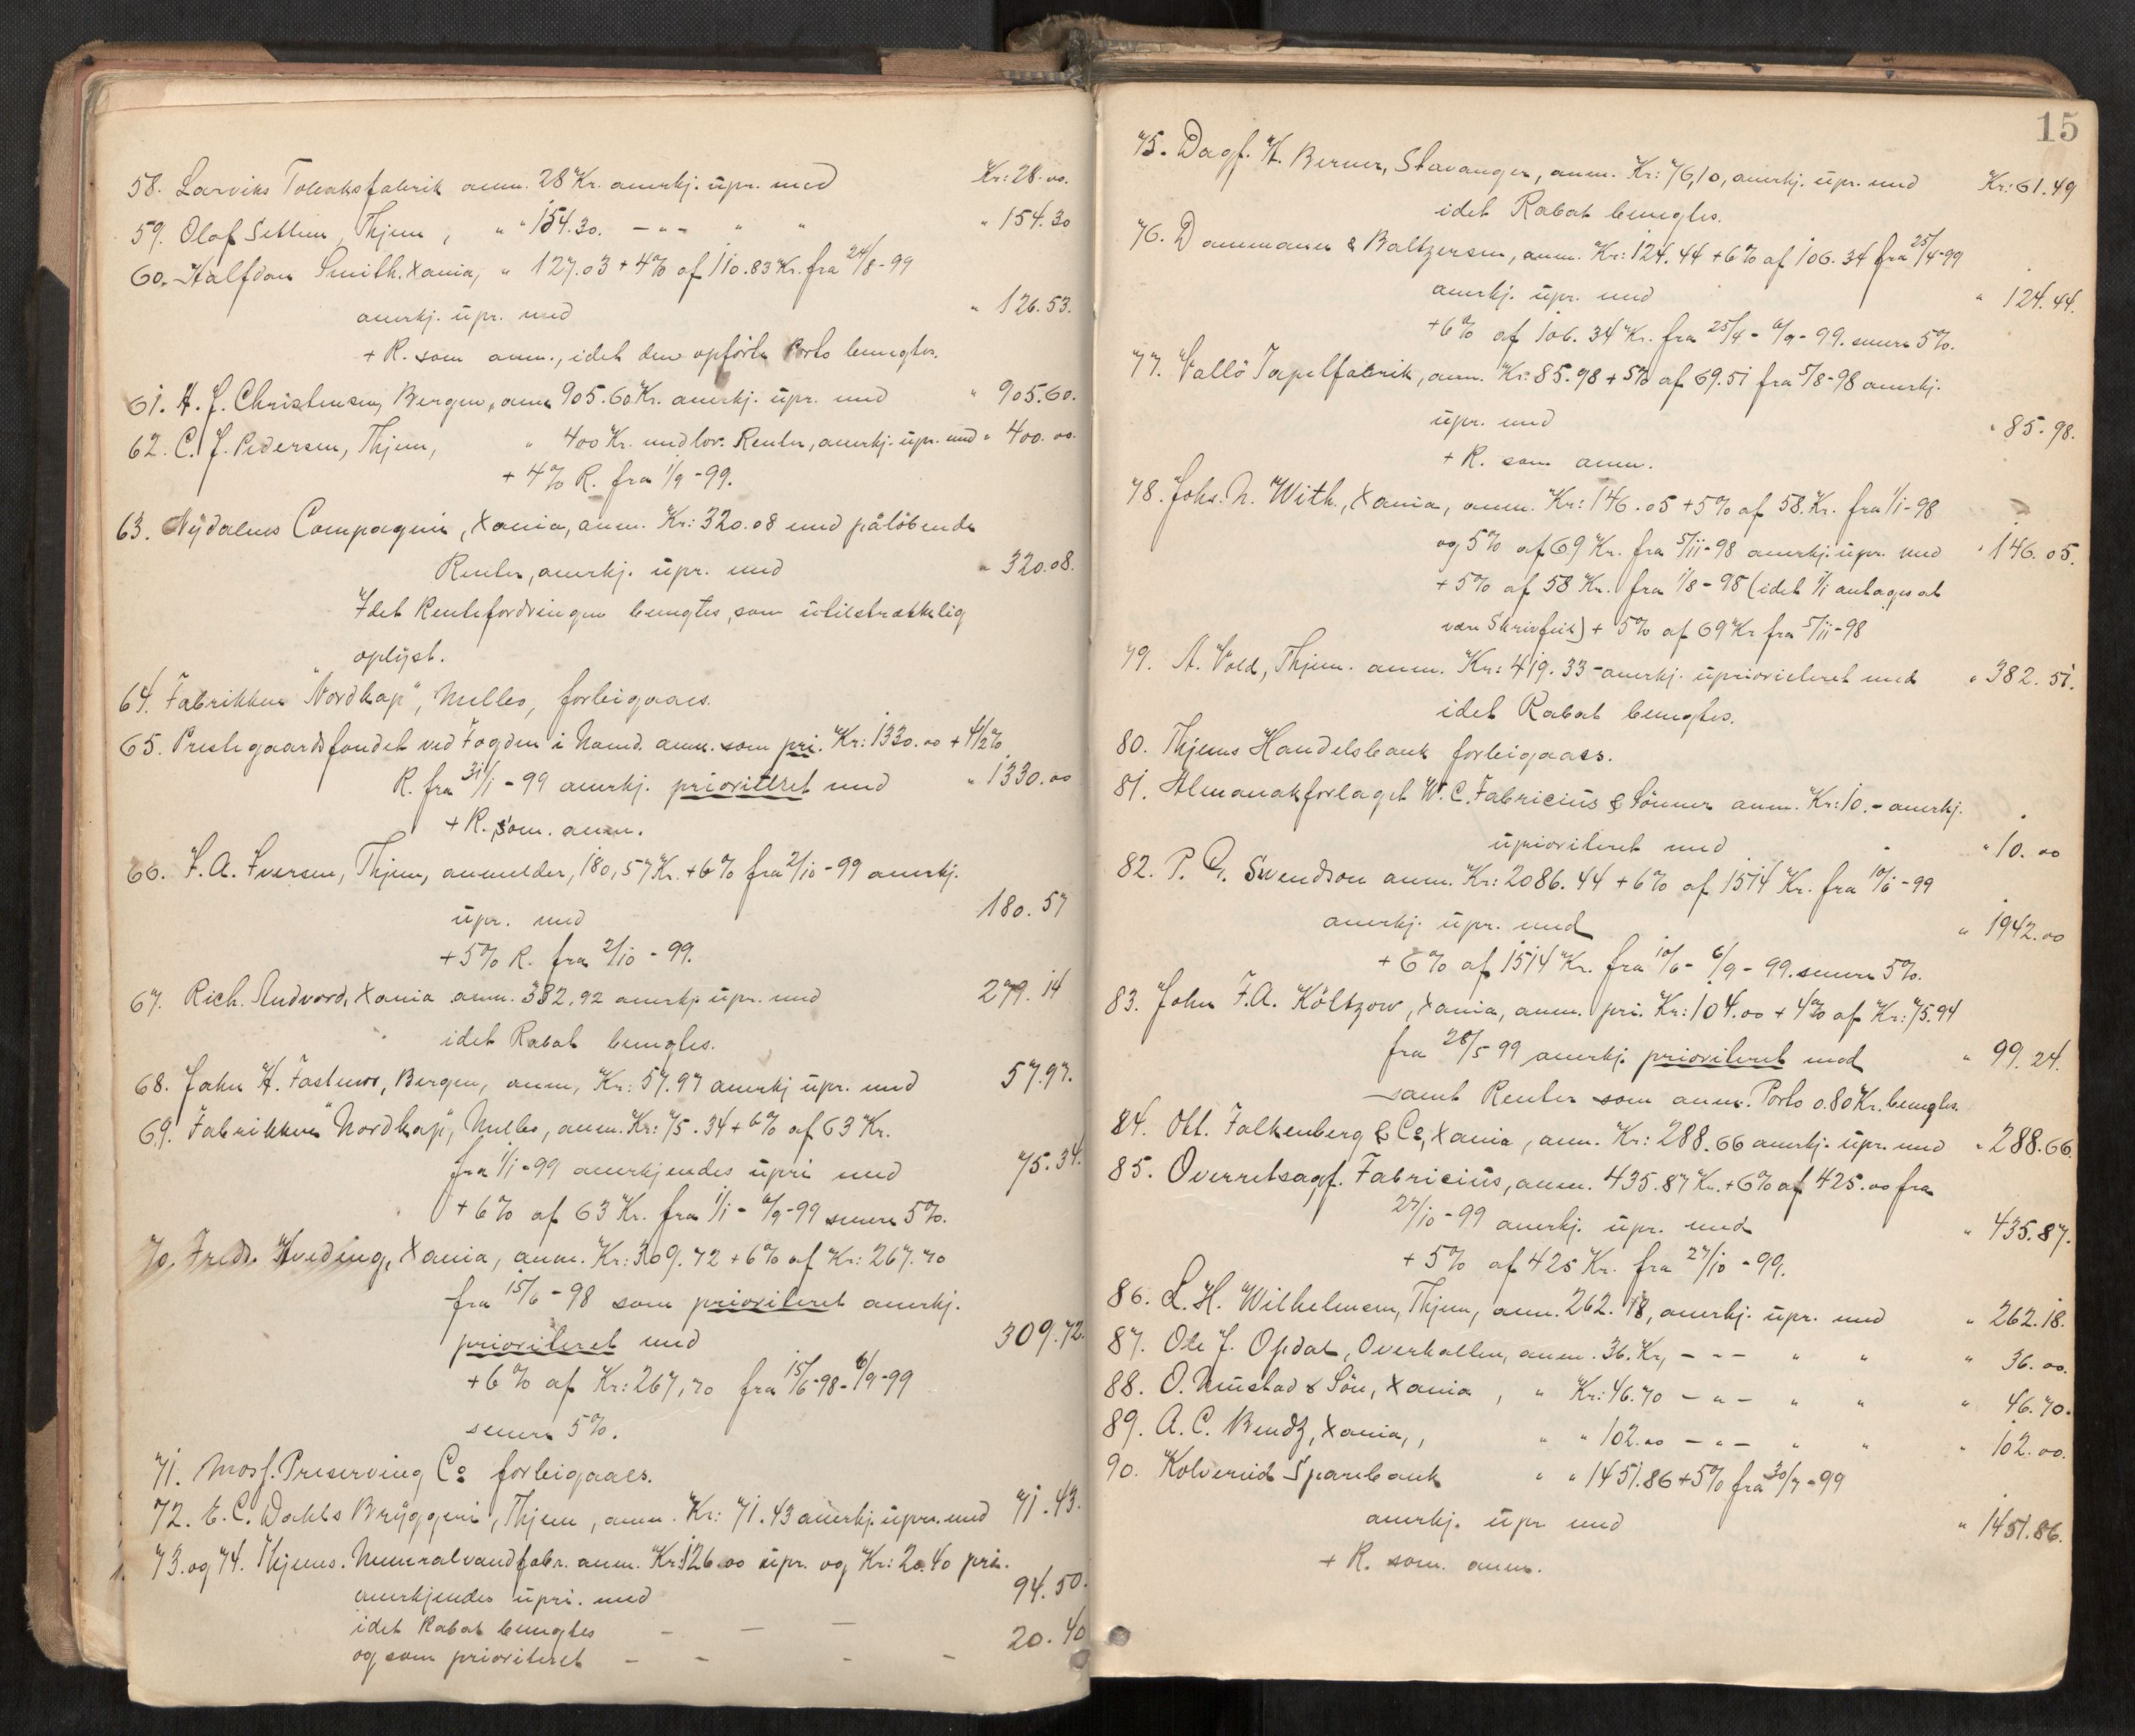 58. Larviks Tobaksfabrik anm. 28 Kr. anerkj. upr. med Kr: 28.00.
59. Olaf Setten, Thjem, " " 154.30. - " - " " " 154.30
60. Halfdan Smith. Xania, " 127.03 + 4% af 110.83 Kr. fra 24/8-99
anerkj. upr. med " 126.53.
+ R. som anm., idet den opförte Porto benegtes.
61. H. J. Christensen, Bergen, anm. 905.60 Kr. anerkj. upr. med " 905.60.
62. C. J. Pedersen, Thjem, " 400 Kr. med lov. Renter, anerkj. upr. med " 400.00.
+ 4% R. fra 1/9-99.
63. Nydalens Compagnie, Xania, anm. Kr: 320.08 med påløbende
Renter, anerkj. upr. med " 320.08.
Idet Rentefordringen benegtes, som utilstrækkelig
oplyst.
64. Fabrikken "Nordkap", Melbo, forbigaaes.
65. Prestegaardsfondet ved Fogden i Namd. anm. som pri. Kr: 1330.00 + 4 1/2%
R. fra 31/1-99 anerkj. prioriteret med " 1330.00
+ R. som anm.
66. F. A. Iversen, Thjem, anmelder, 180,57 Kr. + 6% fra 2/10-99 anerkj.
upr. med 180.57
+ 5% R. fra 2/10-99.
67. Rich. Andvord, Xania anm. 382,92 anerkj. upr. med 279.14
idet Rabat benegtes.
68. John H. Fastens, Bergen, anm, Kr: 57.97 anerkj upr. med 57.97.
69. Fabrikken "Nordkap", Melbo, anm. Kr: 75.34 + 6% af 63 Kr.
fra 1/1-99 anerkjendes upri med 75.34.
+ 6% af 63 Kr. fra 1/1 - 6/9-99 senere 5%.
70. Fredr. Hveding, Xania, anm. Kr: 309.72 + 6% af Kr: 267.70
fra 15/6-98 som prioriteret anerkj.
prioriteret med 309.72.
+ 6% af Kr: 267,70 fra 15/6-98 - 6/9-99
senere 5%.
71. Mosf. Preserving Co forbigaaes.
72. E. C. Dahls Bryggeri, Thjem, anm. Kr: 71.43 anerkj. upr. med 71.43.
73. og 74. Thjems. Mineralvandfabr. anm. Kr: 126.00 upr. og Kr: 20.40 pri.
anerkjendes upri. med 94.50.
idet Rabat benegtes - - -
og som prioriteret - - - - 20.40
15
75. Dagf. H. Berner, Stavanger, anm. Kr: 76,10, anerkj. upr. med Kr: 61.49
idet Rabat benegtes.
76. Dammann & Baltzersen, anm. Kr: 124.44 + 6% af 106.34 fra 25/4-99
anerkj. upr. med " 124.44.
+ 6% af 106.34 Kr. fra 25/4 - 6/9-99. senere 5%.
77. Vallö Tapetfabrik, anm. Kr: 85.98 + 5% af 69.51 fra 5/8-98 anerkj.
upr. med " 85.98.
+ R. som anm.
78. Johs. N. With., Xania, anm. Kr: 146.05 + 5% af 58. Kr. fra 1/1-98
og 5% af 69 Kr. fra 5/11-98 anerkj. upr. med " 146.05.
+ 5% af 58 Kr. fra 1/8-98 (idet 1/1 antages at
være Skrivfeil) + 5% af 69 Kr fra 5/11-98
79. A. Vold, Thjem. anm. Kr: 419.33 - anerkj. uprioriteret med " 382.51.
idet Rabat benegtes.
80. Thjems Handelsbank forbigaaes.
81. Almanakforlaget W. C. Fabricius & Sønner anm. Kr: 10.- anerkj.
uprioriteret med " 10.00
82. P. G. Svendson anm. Kr: 2086.44 + 6% af 1514 Kr. fra 10/6-99
anerkj. upr. med " 1942.00
+ 6% af 1514 Kr. fra 10/6 - 6/9-99. senere 5%.
83. John F. A. Költzow, Xania, anm. pri. Kr: 104.00 + 4% af Kr: 75.94
fra 28/5 99 anerkj. prioriteret med " 99.24.
samt Renter som anm. Porto 0.80 Kr. benegtes.
84. Ott. Falkenberg & Co, Xania, anm. Kr: 288.66 anerkj. upr. med " 288.66.
85. Overretsagf. Fabricius, anm. 435.87 Kr. + 6% af 425.00 fra
27/10-99 anerkj. upr. med " 435.87.
+ 5% af 425 Kr. fra 27/10-99.
86. L. H. Wilhelmsen, Thjem, anm. 262.18, anerkj. upr. med " 262.18.
87. Ole J. Opdal, Overhallen, anm. 36. Kr, - - - " " " 36.00.
88. O. Mustad & Sön, Xania, " Kr: 46.70 - " - " " " 46.70.
89. A. C. Bendz, Xania,, " " 102.00 - " - " " " 102.00.
90. Kolvereid Sparebank " " 1451.86 + 5% fra 30/7-99
anerkj. upr med " 1451.86.
+ R. som. anm.